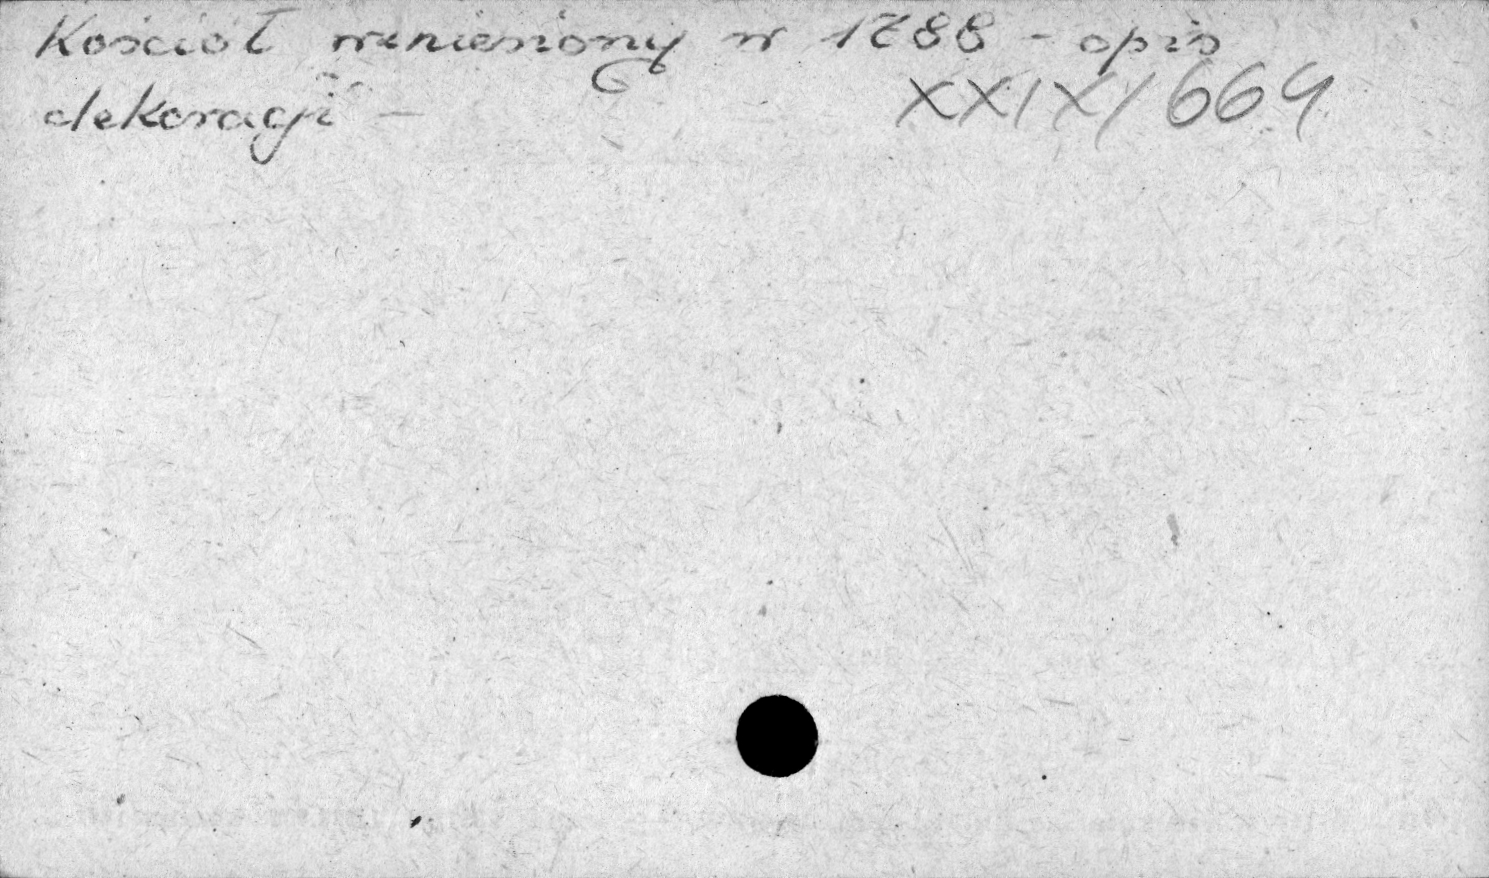 Kościół wzniesiony w 1788 – opis
dekoracji –
XXIX/664